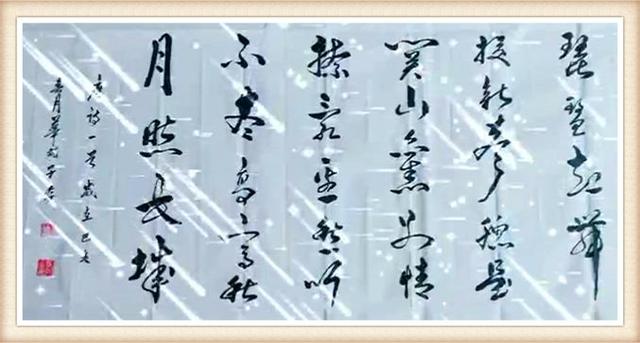 琵琶起舞
换新声总是
关山旧别情
撩乱边愁听
不尽高高秋
月照长城
唐诗一首岁在己亥